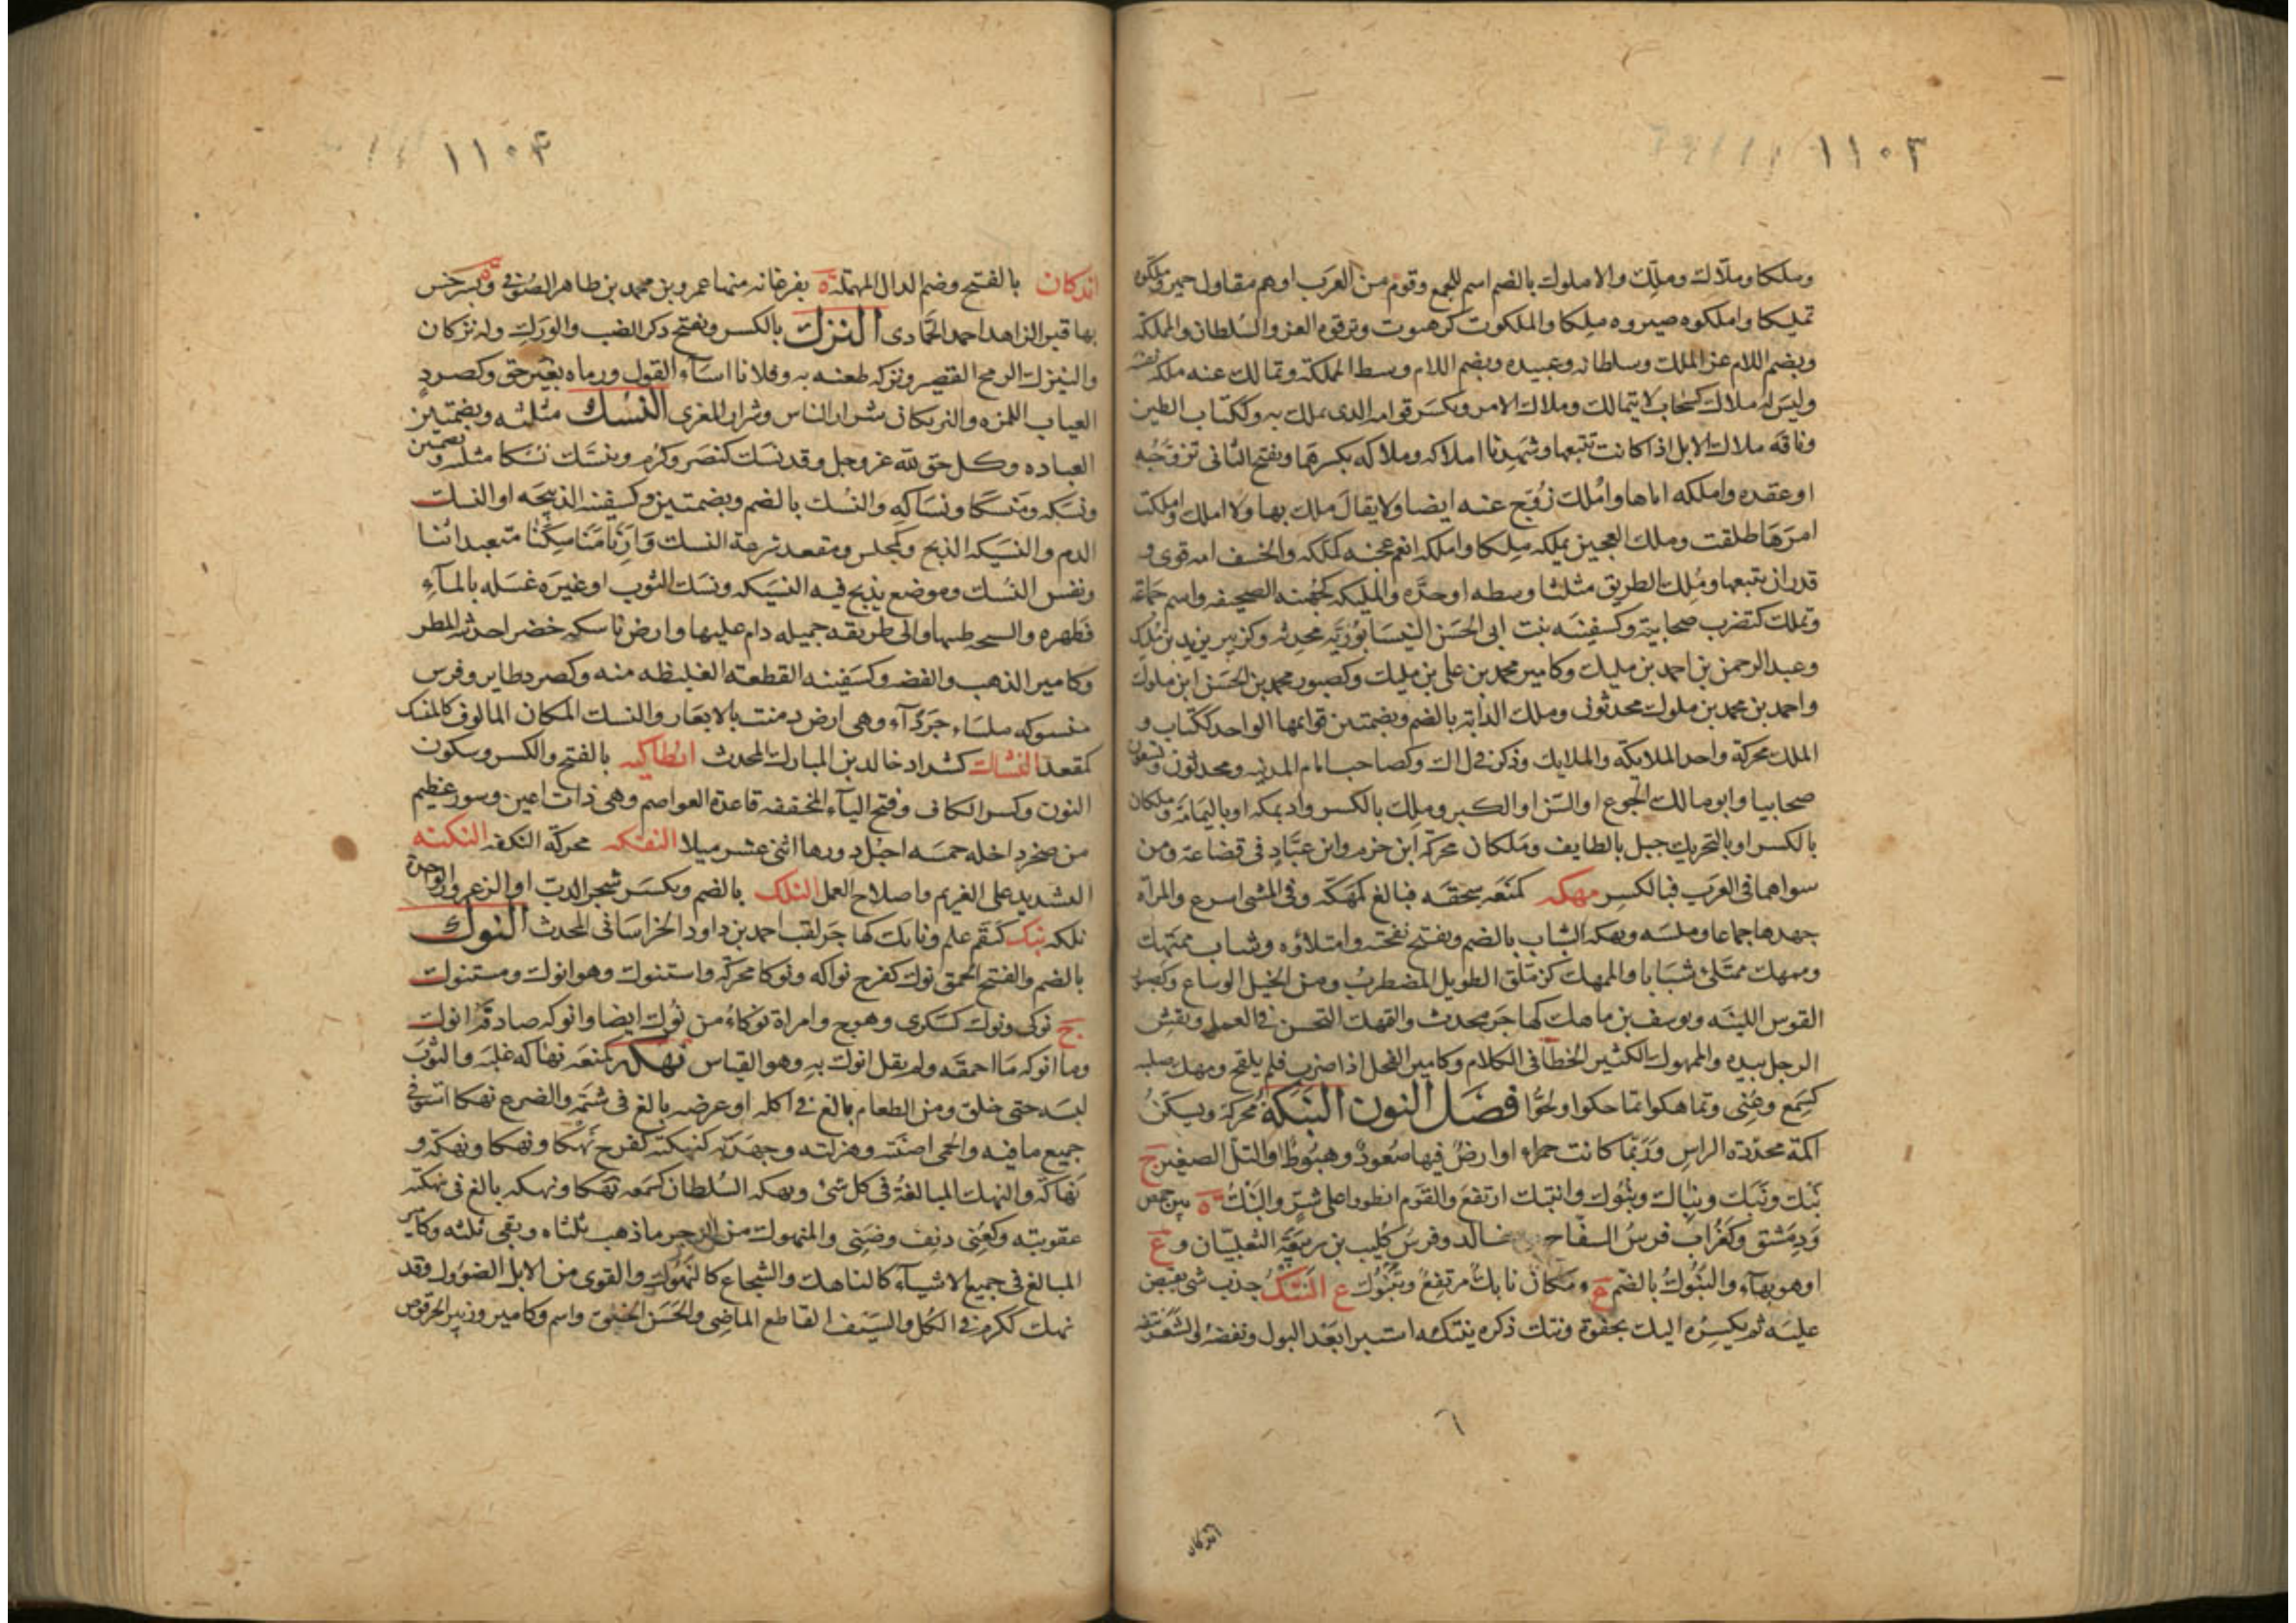 ١١٠٣
وملكا وملاك وملك والاملوك بالضم اسم للجمع وقوم من العرب اوهم مقاول حمير وملكوه
تمليكا واملكوه صيروه ملكا والملكوت كرهبوت وترقوه العز والسلطان والمملكة
وبضم اللام عز الملك وسلطانه وعبيده وبضم اللام وسط المملكة وتمالك عنه ملك نفسه
وليس له ملاك كسحاب لا يتمالك وملاك الامر ويكسر قوامه الذى يملك به وككتاب الطين
وناقة ملاك الابل اذا كانت تتبعها وشهدنا املاكه وملاكه بكسرهما ويفتح الثانى تزوجه
اوعقده واملكه اياها واملك زوج عنه ايضا ولا يقال ملك بها ولا املك واملكت
امرها طلقت وملك العجين يملكه ملكا واملكه انعم عجنه كملكه والخشف امه قوى و
قدر ان يتبعها وملك الطريق مثلثا وسطه اوحده والمليكة كجهينة الصحيفه واسم جماعة
وتملك كتضرب صحابية وكسفينه بنت ابى الحسن النيسابورية محدثه وكزبير يزيد بن مليك
وعبد الرحمن بن احمد بن مليك وكامير محمد بن على بن مليك وكصبور محمد بن الحسن ابن ملوك
واحمد بن محمد بن ملوك محدثون وملك الدابة بالضم وبضمتين قوايمها الواحد ككتاب و
الملك محركة واحد الملايكه والملايك وذكر فى ل اك وكصاحب امام المدينه ومحدثون وتسعون
صحابيا وابو مالك الجوع او السن او الكبر وملك بالكسر واد بمكه او باليمامة وملكان
بالكسر او بالتحريك جبل بالطايف وملكان محركة ابن حزم وابن عباد فى قضاعة ومن
سواهما فى العرب فبالكسر مهكه كمنعه سحقه فبالغ كمهكه وفى المشى اسرع والمراة
جهدها جماعا وملسه ومهكه الشاب بالضم ويفتح نفخته وامتلاؤه وشاب ممتهك
وممهك ممتلئ شبابا والممهك كزملق الطويل المضطرب ومن الخيل الوساع وكصبور
القوس اللينه ويوسف بن ماهك كهاجر محدث والتمهك التحسن فى العمل ونقش
الرجل بيده والممهوك الكثير الخطأ فى الكلام وكامير الفحل اذا ضرب فلم يلقح ومهك صلبه
كسمع وعنى وتماهكوا تماحكوا ولجوا فصل النون النبكة محركة ويسكن
اكمة محددة الراس وربما كانت حمراء او ارض فيها صعود وهبوط او التل الصغير ج
نبك ونبك ونباك ونبوك وانتبك ارتفع والقوم انطووا على شر والنبك ة بين حمص
ودمشق وكغراب فرس السفاح بن خالد وفرس كليب بن ربيعة التغلبيان وع
اوهو بهاء والنبوك بالضم ع ومكان نابك مرتفع وتبوك ع النتك جذب شئ تقبض
عليه ثم تكسره اليك بجفوة ونتك ذكره ينتكه استبرا بعد البول ونفضه والشعر نتفه
٦
اندكان
١١٠٤
اندكان بالفتح وضم الدال المهملة ة بفرغانه منها عمرو بن محمد بن طاهر الصوفى وة بسرخس
بها قبر الزاهد احمد الحمادى النزك بالكسر ويفتح ذكر الضب والورل وله نزكان
والنيزك الرمح القصير ونزكه طعنه به وفلانا اساء القول ورماه بغير حق وكصرد
العياب اللمزه والنزيكان شرار الناس وشرار المعزى النسك مثلثه وبضمتين
العباده وكل حق لله عز وجل وقد نسك كنصر وكرم وتنسك نسكا مثلثه وبضمتين
ونسكه ومنسكا ونساكه والنسك بالضم وبضمتين وكسفينه الذبيحه او النسك
الدم والنسيكه الذبح وكمجلس ومقعد شرعة النسك وارنا مناسكنا متعبداتنا
ونفس النسك وموضع يذبح فيه النسيكه ونسك الثوب اوغيره غسله بالماء
فطهره والسبخه طيبها والى طريقه جميله دام عليها وارض ناسكه خضر احدثه المطر
وكامير الذهب والفضه وكسفينه القطعة الغليظه منه وكصرد طاير وفرس
منسوكه ملساء جرداء وهى ارض دمنت بالابعار والنسك المكان المالوف كالمنسك
كمقعد النشاك كشداد خالد بن المبارك المحدث انطاكيه بالفتح والكسر وسكون
النون وكسر الكاف وفتح الياء المخففه قاعدة العواصم وهى ذات اعين وسور عظيم
من صخر داخله خمسه اجبل دورها اثنى عشر ميلا النفكه محركة النكفه النكته
التشديد على الغريم واصلاح العمل النلك بالضم ويكسر شجر الدب او الزعرور الواحدة
نلكه نبك كبقم علم ونابك كهاجر لقب احمد بن داود الخراسانى المحدث النوك
بالضم والفتح الحمق نوك كفرح نواكه ونوكا محركة واستنوك وهو انوك ومستنوك
ج نوكى ونوك كسكرى وهوج وامراة نوكاء من نوك ايضا وانوكه صادفه انوك
وما انوكه ما احمقه ولم يقل انوك به وهو القياس نهكه كمنعه نهاكه غلبه والثوب
لبسه حتى خلق ومن الطعام بالغ فى اكله او عرضه بالغ فى شتمه والضرع نهكا استوفى
جميع ما فيه والحمى اضنته وهزلته وجهدته كنهكته كفرح نهكا ونهكا ونهكة و
نهاكة والنهك المبالغة فى كل شئ ونهكه السلطان كسمعه نهكا ونهكه بالغ فى نهكته
عقوبته وكعنى دنف وضنى والمنهوك من الرجز ما ذهب ثلثاه وبقى ثلثه وكامير
المبالغ فى جميع الاشياء كالناهك والشجاع كالنهوك والقوى من الابل الصؤول وقد
نهك ككرم فى الكل والسيف القاطع الماضى والحسن الخلق واسم وكامير وزبير الحرقوص